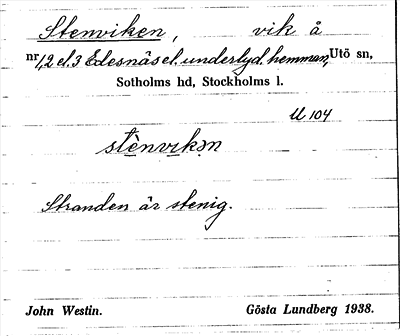 Stenviken, vik å
nr 1, 2 el. 3 Edesnäs el. underlyd. hemman, Utö sn,
Sotholms hd, Stockholms l.
U 104
stènvikən
Stranden är stenig.
John Westin. Gösta Lundberg 1938.